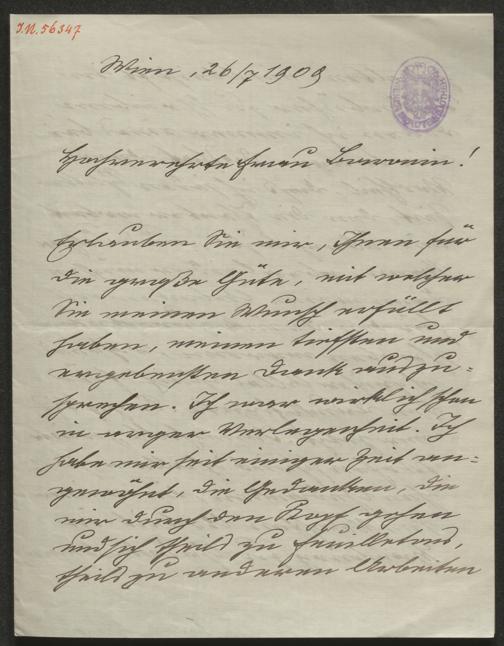 I.N. 56347
Wien, 26/7 1909
Hochverehrte Frau Baronin!
Erlauben Sie mir, Ihnen für
die große Güte, mit welcher
Sie meinen Wunsch erfüllt
haben, meinen tiefsten und
ergebensten Dank auszu-
sprechen. Ich war wirklich schon
in arger Verlegenheit. Ich
habe mir seit einiger Zeit an-
gewöhnt, die Gedanken, die
mir durch den Kopf gehen
und sich theils zu Feuilletons,
theils zu anderen Arbeiten